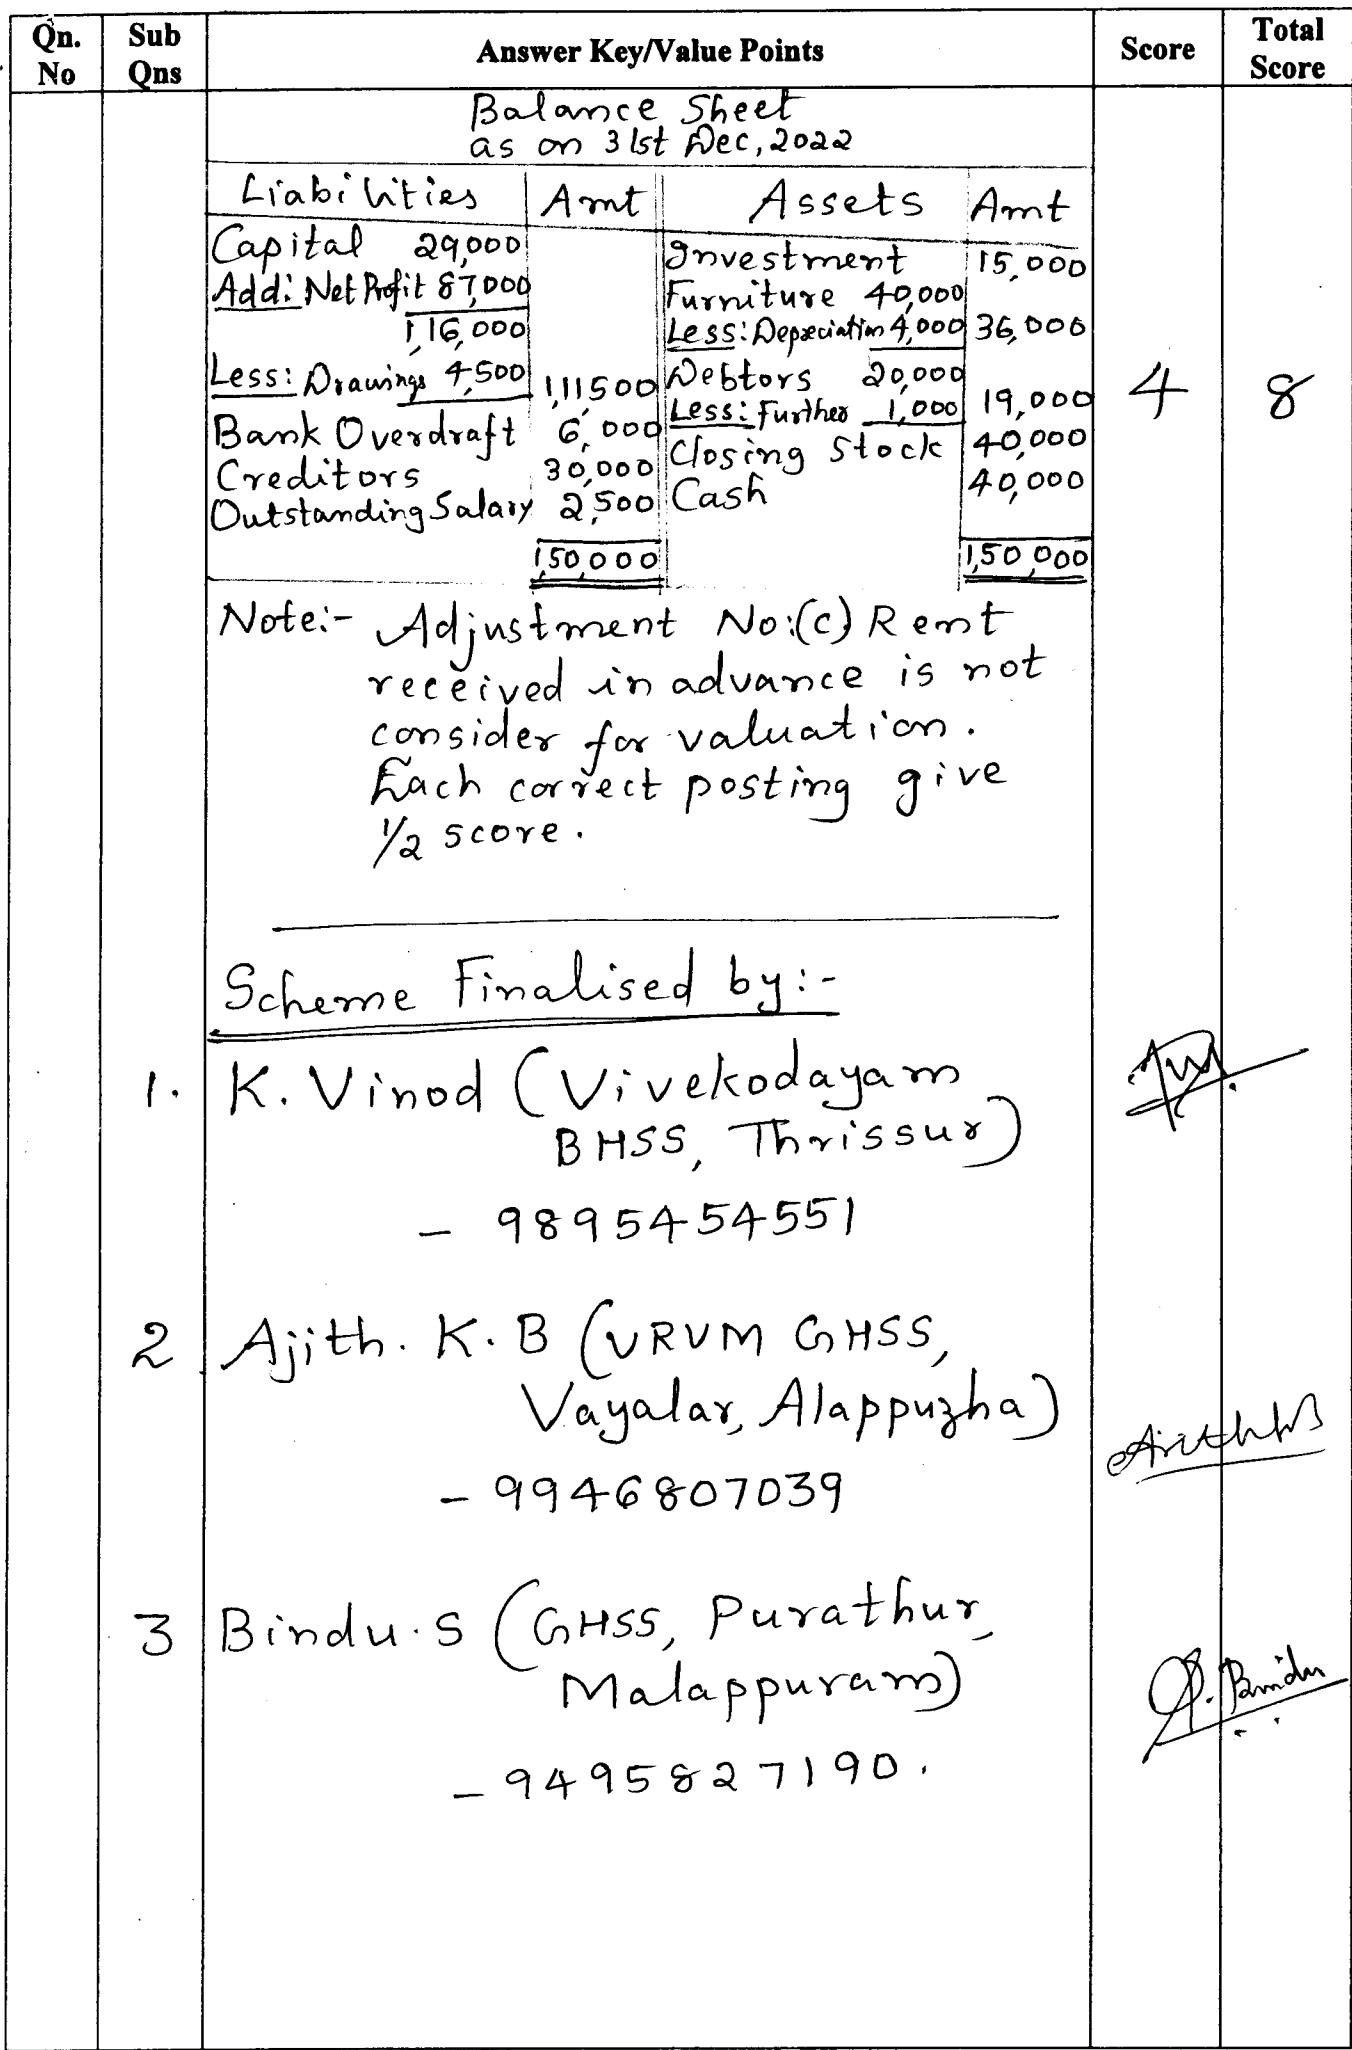 Qn. No Sub Qns Answer Key/Value Points Score Total Score
Balance Sheet
as on 31st Dec, 2022
Liabilities Amt Assets Amt
Capital 29,000 Investment 15,000
Add: Net Profit 87,000 Furniture 40,000
1,16,000 Less: Depreciation 4,000 36,000
Less: Drawings 4,500 1,11500 Debtors 20,000
Less: Further 1,000 19,000 4 8
Bank Overdraft 6,000 Closing Stock 40,000
Creditors 30,000 Cash 40,000
Outstanding Salary 2,500
1,50,000 1,50,000
Note:- Adjustment No:(c) Rent
received in advance is not
consider for valuation.
Each correct posting give
1/2 score.
Scheme Finalised by:-
1. K. Vinod (Vivekodayam
BHSS, Thrissur)
- 9895454551
2 Ajith. K. B (VRVM GHSS,
Vayalar, Alappuzha)
- 9946807039
3 Bindu. S (GHSS, Purathur,
Malappuram)
- 9495827190.